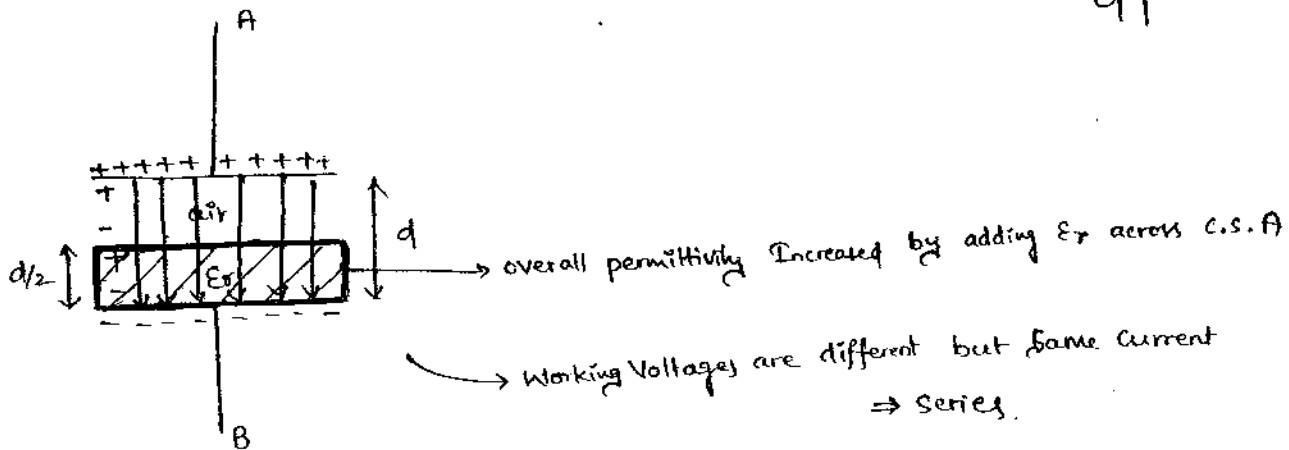 A
+++++ + + + + ++
+
-
air
d
d/2
+
-
εr
→ overall permittivity Increased by adding εr across C.S.A
- - - - - - - - - -
→ Working Voltages are different but Same Current
⇒ series.
B